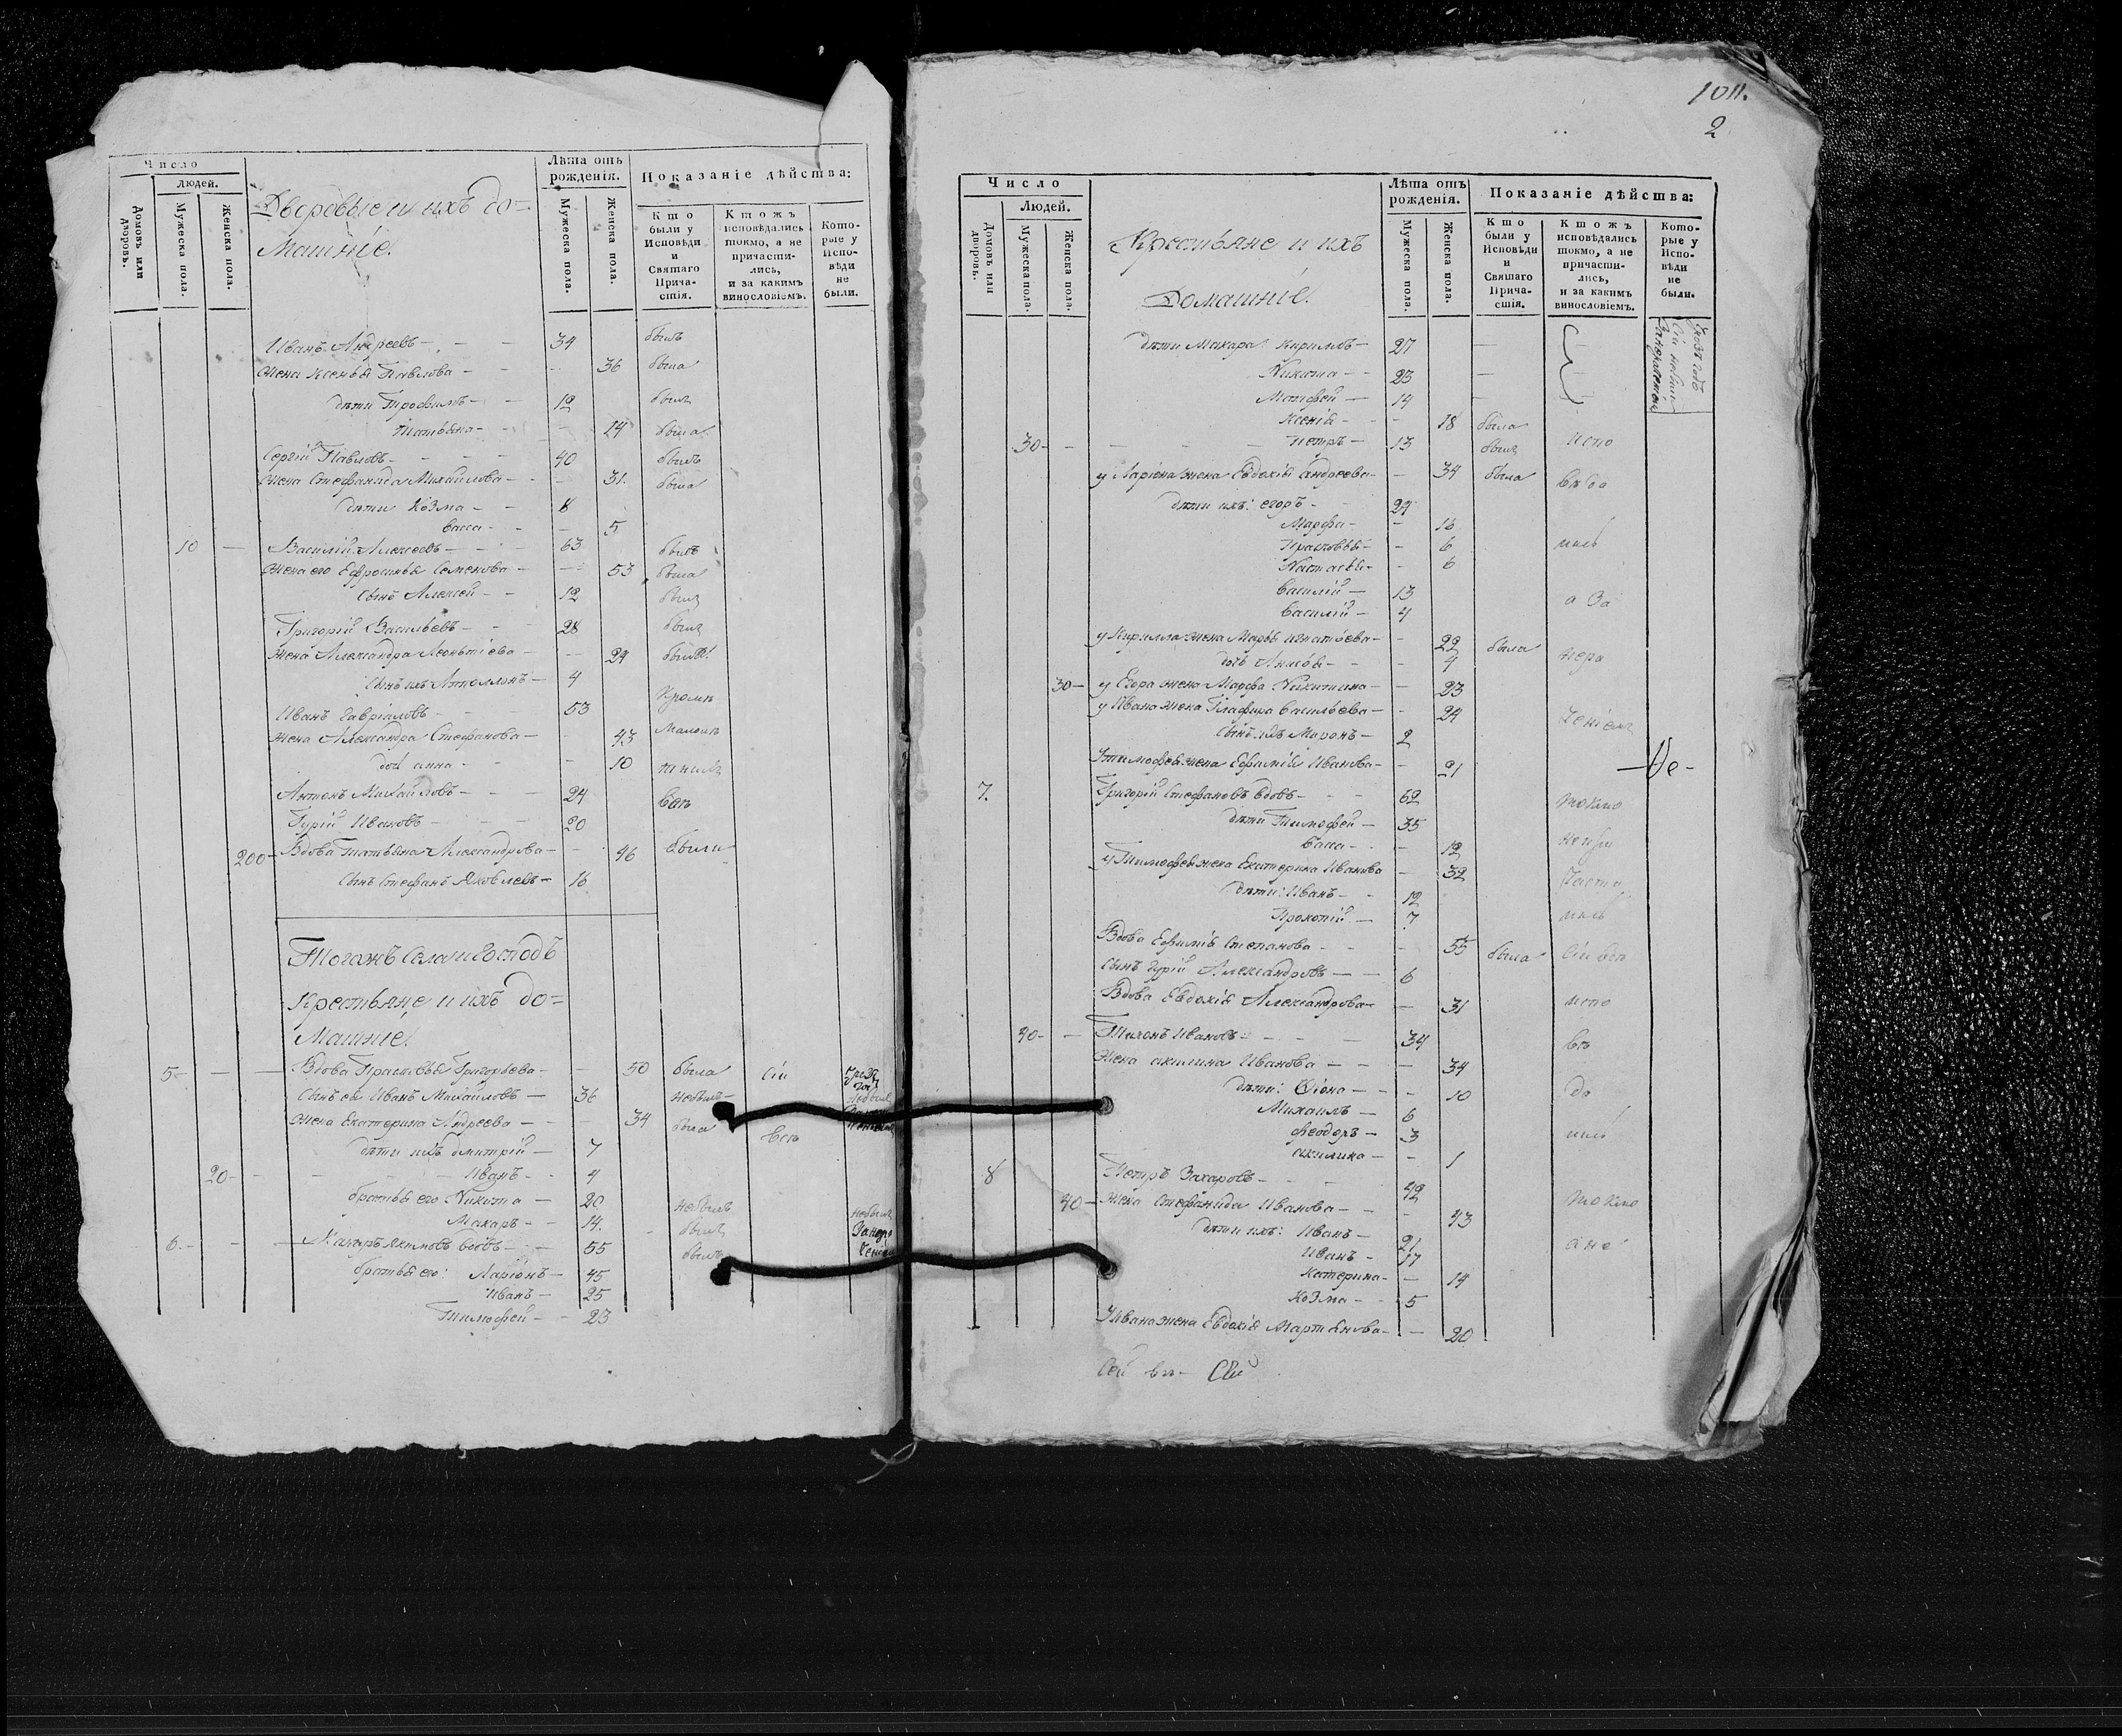 Число
Людей.
Домовъ или дворовъ.
Мужеска пола.
Женска пола.
Дворовые и ихъ до=
Машніе.
Лѣта отъ рожденія.
Мужеска пола.
Женска пола.
Показаніе дѣйства:
Кто были у Исповѣди и Святаго Причастія.
Ктожъ исповѣдались токмо, а не причастились, и за какимъ винословіемъ.
Которые у Исповѣди не были.
Иванъ Андреевъ - 34 былъ
Жена Ксенья Павлова - 36 была
дѣти Трофимъ - 12 былъ
Татьяна - 14 была
Сергій Павловъ - 40 былъ
Жена Стефанида Михайлова - 31. была
дѣти Козма - 8
Васса - 5
10 - Василій Алексеевъ - 63 былъ
Жена его Ефросинья Семенова - 53 была
Сынъ Алексей - 12 былъ
Григорій Васильевъ - 28 былъ
Жена Александра Леонтіева - 24
Сынъ ихъ Апполлонъ - 4
Иванъ Гавріиловъ - 53
Жена Александра Стефанова - 43
дочь Анна - 10
Антонъ Михайловъ - 24 всѣ
Гурій Ивановъ - 20
200 - Вдова Татьяна Александрова - 46 были
Сынъ Стефанъ Яковлевъ - 16
Тогожъ Села и Господъ
Крестьяне и ихъ до=
Машніе.
5 - Вдова Прасковья Григорьева - 50 была сіи
Сынъ ея Иванъ Михайловъ - 36 небылъ
Жена Екатерина Андреева - 34 была всѣ
дѣти ихъ Дмитрій - 7
20 - Иванъ - 4
братья его Никита - 20 небылъ небылъ
Макаръ - 14. былъ
6 - Макаръ Якимовъ вдовъ - 55 былъ
братья его: Ларіонъ - 45
Иванъ - 25
Тимофей - 23
1011.
2
Число
Людей.
Домовъ или дворовъ.
Мужеска пола.
Женска пола.
Крестьяне и ихъ
Домашніе.
Лѣта отъ рожденія.
Мужеска пола.
Женска пола.
Показаніе дѣйства:
Кто были у Исповѣди и Святаго Причастія.
Ктожъ исповѣдались токмо, а не причастились, и за какимъ винословіемъ.
Которые у Исповѣди не были.
дѣти Макара: Кирилъ - 27
Никита - 23
Матфей - 14
Ксенія - 18 была
30 - Петръ - 13 былъ испо
у Ларіона жена Евдокія Андреева - 34 была вѣда
дѣти ихъ: Егоръ - 24
Марфа - 16
Прасковья - 6 лись
Настасья - 6
Василій - 13
Василій - 4 а за
у Кирилла жена Марья Игнатьева - 22 была
дочь Анисья - 4 нера
30 - у Егора жена Марфа Никитина - 23
у Ивана жена Глафира Васильева - 24 ченіемъ
Сынъ ихъ Миронъ - 2
У Тимофея жена Ефимія Иванова - 21
7. Григорій Стефановъ вдовъ - 62 токмо
дѣти Тимофей - 35
Васса - 12 непри
у Тимофея жена Екатерина Иванова - 32 части
дѣти: Иванъ - 12
Прокопій - 7 лись
Вдова Ефимія Степанова - 55 была сіи всѣ
Сынъ Гурій Александровъ - 6
Вдова Евдокія Александрова - 31 испо
40 - Тихонъ Ивановъ - 34 вѣ
Жена Акилина Иванова - 34
дѣти: Фіона - 10 да
Михаилъ - 6
Феодоръ - 3 лись
Акилина - 1
8 Петръ Захаровъ - 42
40 - Жена Стефанида Иванова - 43 токмо
дѣти ихъ: Иванъ - 21
Иванъ - 17 а не
Катерина - 14
Козма - 5
У Ивана жена Евдокія Мартынова - 20